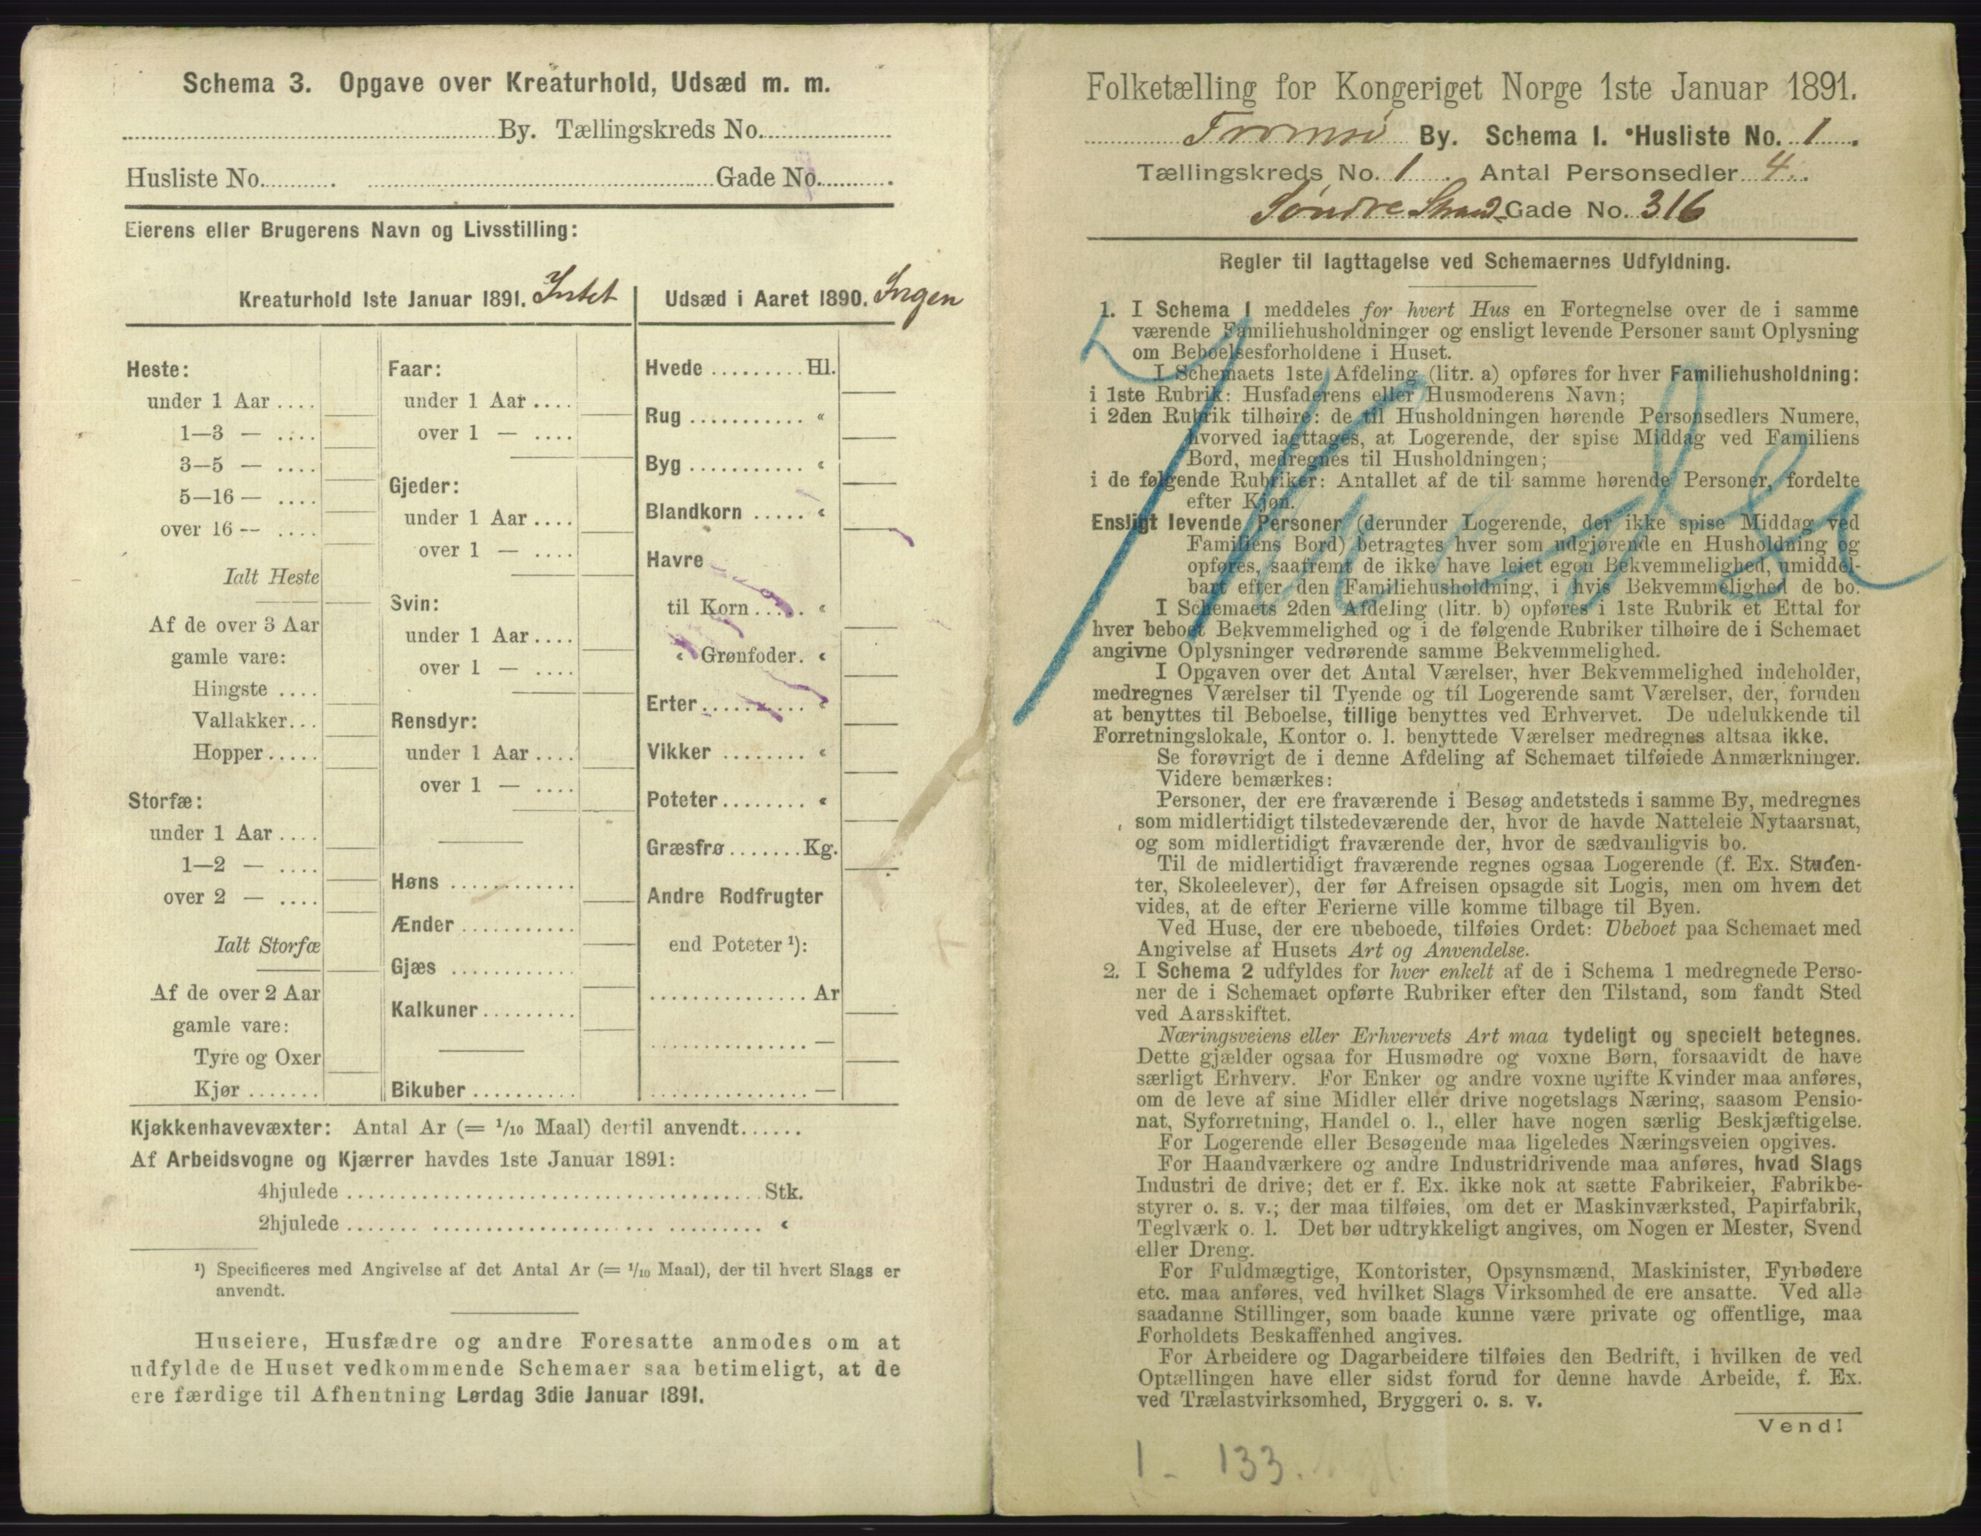 Schema 3. Opgave over Kreaturhold, Udsæd m. m.
By. Tællingskreds No.
Husliste No. Gade No.
Eierens eller Brugerens Navn og Livsstilling:
Kreaturhold 1ste Januar 1891. Intet
Heste:
under 1 Aar
1—3 —
3—5 —
5—16 —
over 16 —
Ialt Heste
Af de over 3 Aar
gamle vare:
Hingste
Vallakker
Hopper
Storfæ:
under 1 Aar
1—2 —
over 2 —
Ialt Storfæ
Af de over 2 Aar
gamle vare:
Tyre og Oxer
Kjør
Faar:
under 1 Aar
over 1 —
Gjeder:
under 1 Aar
over 1 —
Svin:
under 1 Aar
over 1 —
Rensdyr:
under 1 Aar
over 1 —
Høns
Ænder
Gjæs
Kalkuner
Bikuber
Udsæd i Aaret 1890. Ingen
Hvede Hl.
Rug "
Byg "
Blandkorn "
Havre
til Korn "
" Grønfoder. "
Erter "
Vikker "
Poteter "
Græsfrø Kg.
Andre Rodfrugter
end Poteter ¹):
Ar
—
—
Kjøkkenhavevæxter: Antal Ar (= 1/10 Maal) dertil anvendt
Af Arbeidsvogne og Kjærrer havdes 1ste Januar 1891:
4hjulede Stk.
2hjulede "
¹) Specificeres med Angivelse af det Antal Ar (= 1/10 Maal), der til hvert Slags er
anvendt.
Huseiere, Husfædre og andre Foresatte anmodes om at
udfylde de Huset vedkommende Schemaer saa betimeligt, at de
ere færdige til Afhentning Lørdag 3die Januar 1891.
Folketælling for Kongeriget Norge 1ste Januar 1891.
Tromsø By. Schema 1. Husliste No. 1.
Tællingskreds No. 1. Antal Personsedler 4.
Søndre Strand-Gade No. 316
Regler til Iagttagelse ved Schemaernes Udfyldning.
1. I Schema 1 meddeles for hvert Hus en Fortegnelse over de i samme
værende Familiehusholdninger og ensligt levende Personer samt Oplysning
om Beboelsesforholdene i Huset.
I Schemaets 1ste Afdeling (litr. a) opføres for hver Familiehusholdning:
i 1ste Rubrik: Husfaderens eller Husmoderens Navn;
i 2den Rubrik tilhøire: de til Husholdningen hørende Personsedlers Numere,
hvorved iagttages, at Logerende, der spise Middag ved Familiens
Bord, medregnes til Husholdningen;
i de følgende Rubriker: Antallet af de til samme hørende Personer, fordelte
efter Kjøn.
Ensligt levende Personer (derunder Logerende, der ikke spise Middag ved
Familiens Bord) betragtes hver som udgjørende en Husholdning og
opføres, saafremt de ikke have leiet egen Bekvemmelighed, umiddel-
bart efter den Familiehusholdning, i hvis Bekvemmelighed de bo.
I Schemaets 2den Afdeling (litr. b) opføres i 1ste Rubrik et Ettal for
hver beboet Bekvemmelighed og i de følgende Rubriker tilhøire de i Schemaet
angivne Oplysninger vedrørende samme Bekvemmelighed.
I Opgaven over det Antal Værelser, hver Bekvemmelighed indeholder,
medregnes Værelser til Tyende og til Logerende samt Værelser, der, foruden
at benyttes til Beboelse, tillige benyttes ved Erhvervet. De udelukkende til
Forretningslokale, Kontor o. l. benyttede Værelser medregnes altsaa ikke.
Se forøvrigt de i denne Afdeling af Schemaet tilføiede Anmærkninger.
Videre bemærkes:
Personer, der ere fraværende i Besøg andetsteds i samme By, medregnes
som midlertidigt tilstedeværende der, hvor de havde Natteleie Nytaarsnat,
og som midlertidigt fraværende der, hvor de sædvanligvis bo.
Til de midlertidigt fraværende regnes ogsaa Logerende (f. Ex. Studen-
ter, Skoleelever), der før Afreisen opsagde sit Logis, men om hvem det
vides, at de efter Ferierne ville komme tilbage til Byen.
Ved Huse, der ere ubeboede, tilføies Ordet: Ubeboet paa Schemaet med
Angivelse af Husets Art og Anvendelse.
2. I Schema 2 udfyldes for hver enkelt af de i Schema 1 medregnede Perso-
ner de i Schemaet opførte Rubriker efter den Tilstand, som fandt Sted
ved Aarsskiftet.
Næringsveiens eller Erhvervets Art maa tydeligt og specielt betegnes.
Dette gjælder ogsaa for Husmødre og voxne Børn, forsaavidt de have
særligt Erhverv. For Enker og andre voxne ugifte Kvinder maa anføres,
om de leve af sine Midler eller drive nogetslags Næring, saasom Pensio-
nat, Syforretning, Handel o. l., eller have nogen særlig Beskjæftigelse.
For Logerende eller Besøgende maa ligeledes Næringsveien opgives.
For Haandværkere og andre Industridrivende maa anføres, hvad Slags
Industri de drive; det er f. Ex. ikke nok at sætte Fabrikeier, Fabrikbe-
styrer o. s. v.; der maa tilføies, om det er Maskinværksted, Papirfabrik,
Teglværk o. l. Det bør udtrykkeligt angives, om Nogen er Mester, Svend
eller Dreng.
For Fuldmægtige, Kontorister, Opsynsmænd, Maskinister, Fyrbødere
etc. maa anføres, ved hvilket Slags Virksomhed de ere ansatte. Ved alle
saadanne Stillinger, som baade kunne være private og offentlige, maa
Forholdets Beskaffenhed angives.
For Arbeidere og Dagarbeidere tilføies den Bedrift, i hvilken de ved
Optællingen have eller sidst forud for denne havde Arbeide, f. Ex.
ved Trælastvirksomhed, Bryggeri o. s. v.
Vend!
1 - 133.